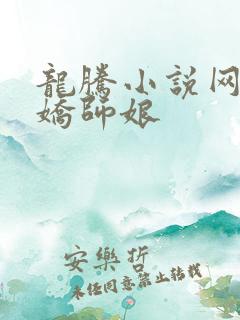 龍騰小說网
嬌師娘
安樂折
未经同意禁止转载